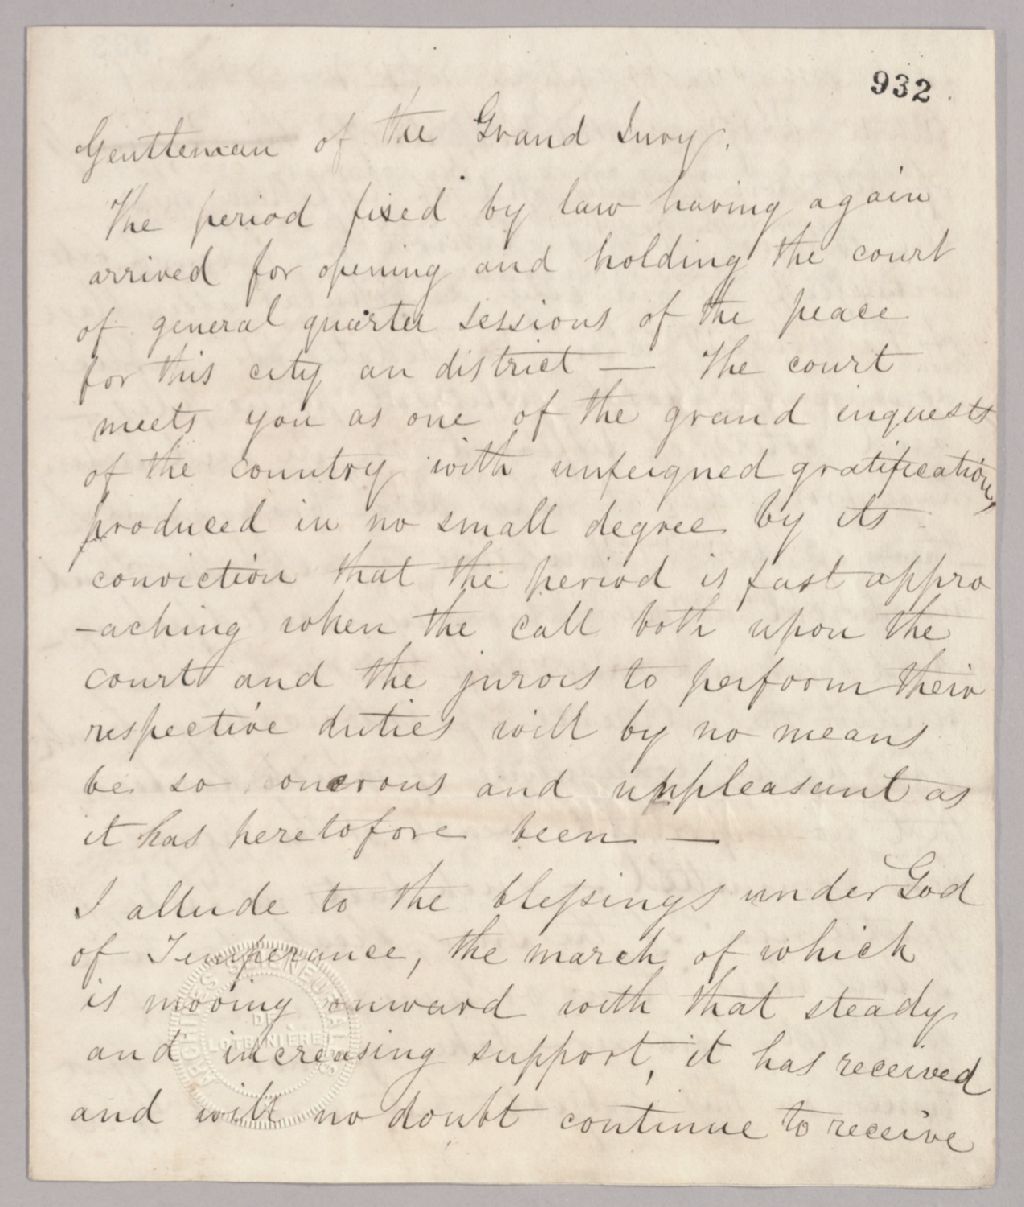 932
Gentleman of the Grand Jury.
The period fixed by law having again
arrived for opening and holding the court
of general quarter sessions of the peace
for this city an district — The court
meets you as one of the grand inquests
of the country with unfeigned gratification,
produced in no small degree by its
conviction that the period is fast appro
-aching when the call both upon the
court and the jurors to perform their
respective duties will by no means
be so onerous and unpleasant as
it has heretofore been —
I allude to the blessings under God
of Temperance, the march of which
is moving onward with that steady
and increasing support, it has received
and will no doubt continue to receive